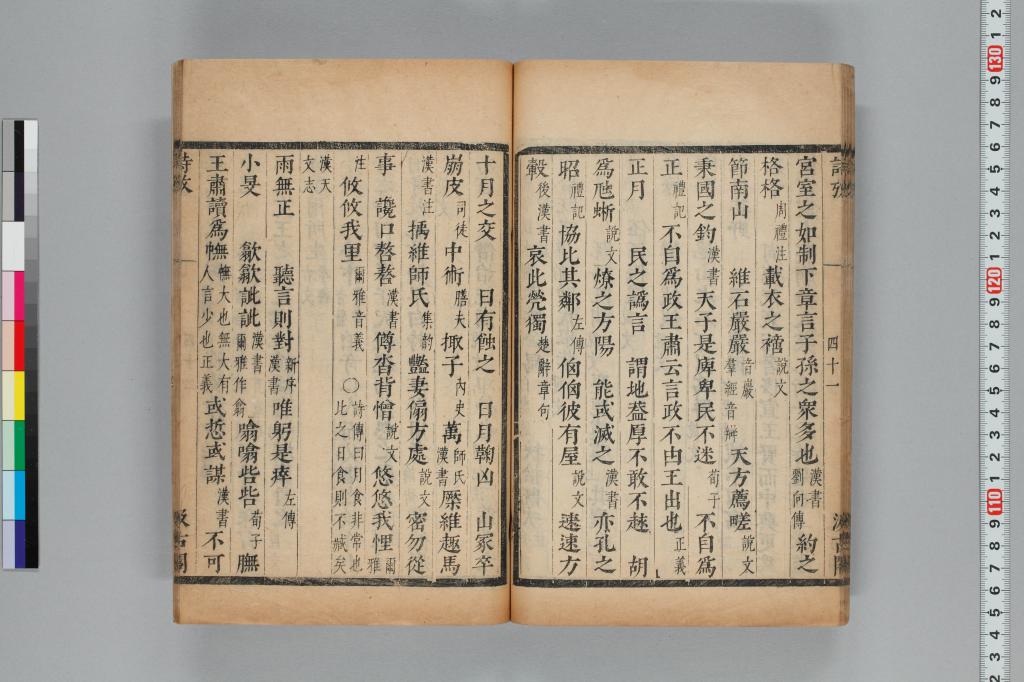 宮室之如制下章言子孫之衆多也漢書劉向傳約之
格格周禮注載衣之䄖說文
節南山 維石嚴嚴音巖羣經音辨天方薦嗟說文
秉國之鈞漢書天子是庳卑民不迷荀子不自爲
正禮記不自爲政王肅云言政不由王出也正義
正月 民之譌言 謂地葢厚不敢不趚 胡
爲虺蜥說文燎之方陽 能或滅之漢書亦孔之
昭禮記協比其鄰左傳伵伵彼有屋說文速速方
轂後漢書哀此煢獨楚辭章句
十月之交 日有蝕之 日月鞠凶 山冢卒
崩皮司徒中術膳夫掫子內史萬師氏漢書橜維趣馬
漢書注 擩維師氏集韵豔妻傓方處說文密勿從
事 讒口嗸嗸漢書僔沓背憎說文悠悠我悝爾雅
注 攸攸我里爾雅音義 ○詩傳曰月食非常也比之日食則不臧矣
漢天文志
雨無正 聽言則對新序漢書唯躬是瘁左傳
小旻 歙歙訿訿漢書爾雅作翕翕翕呰呰荀子膴
王肅讀爲幠幠大也無大有人言少也正義或悊或謀漢書不可
四十一